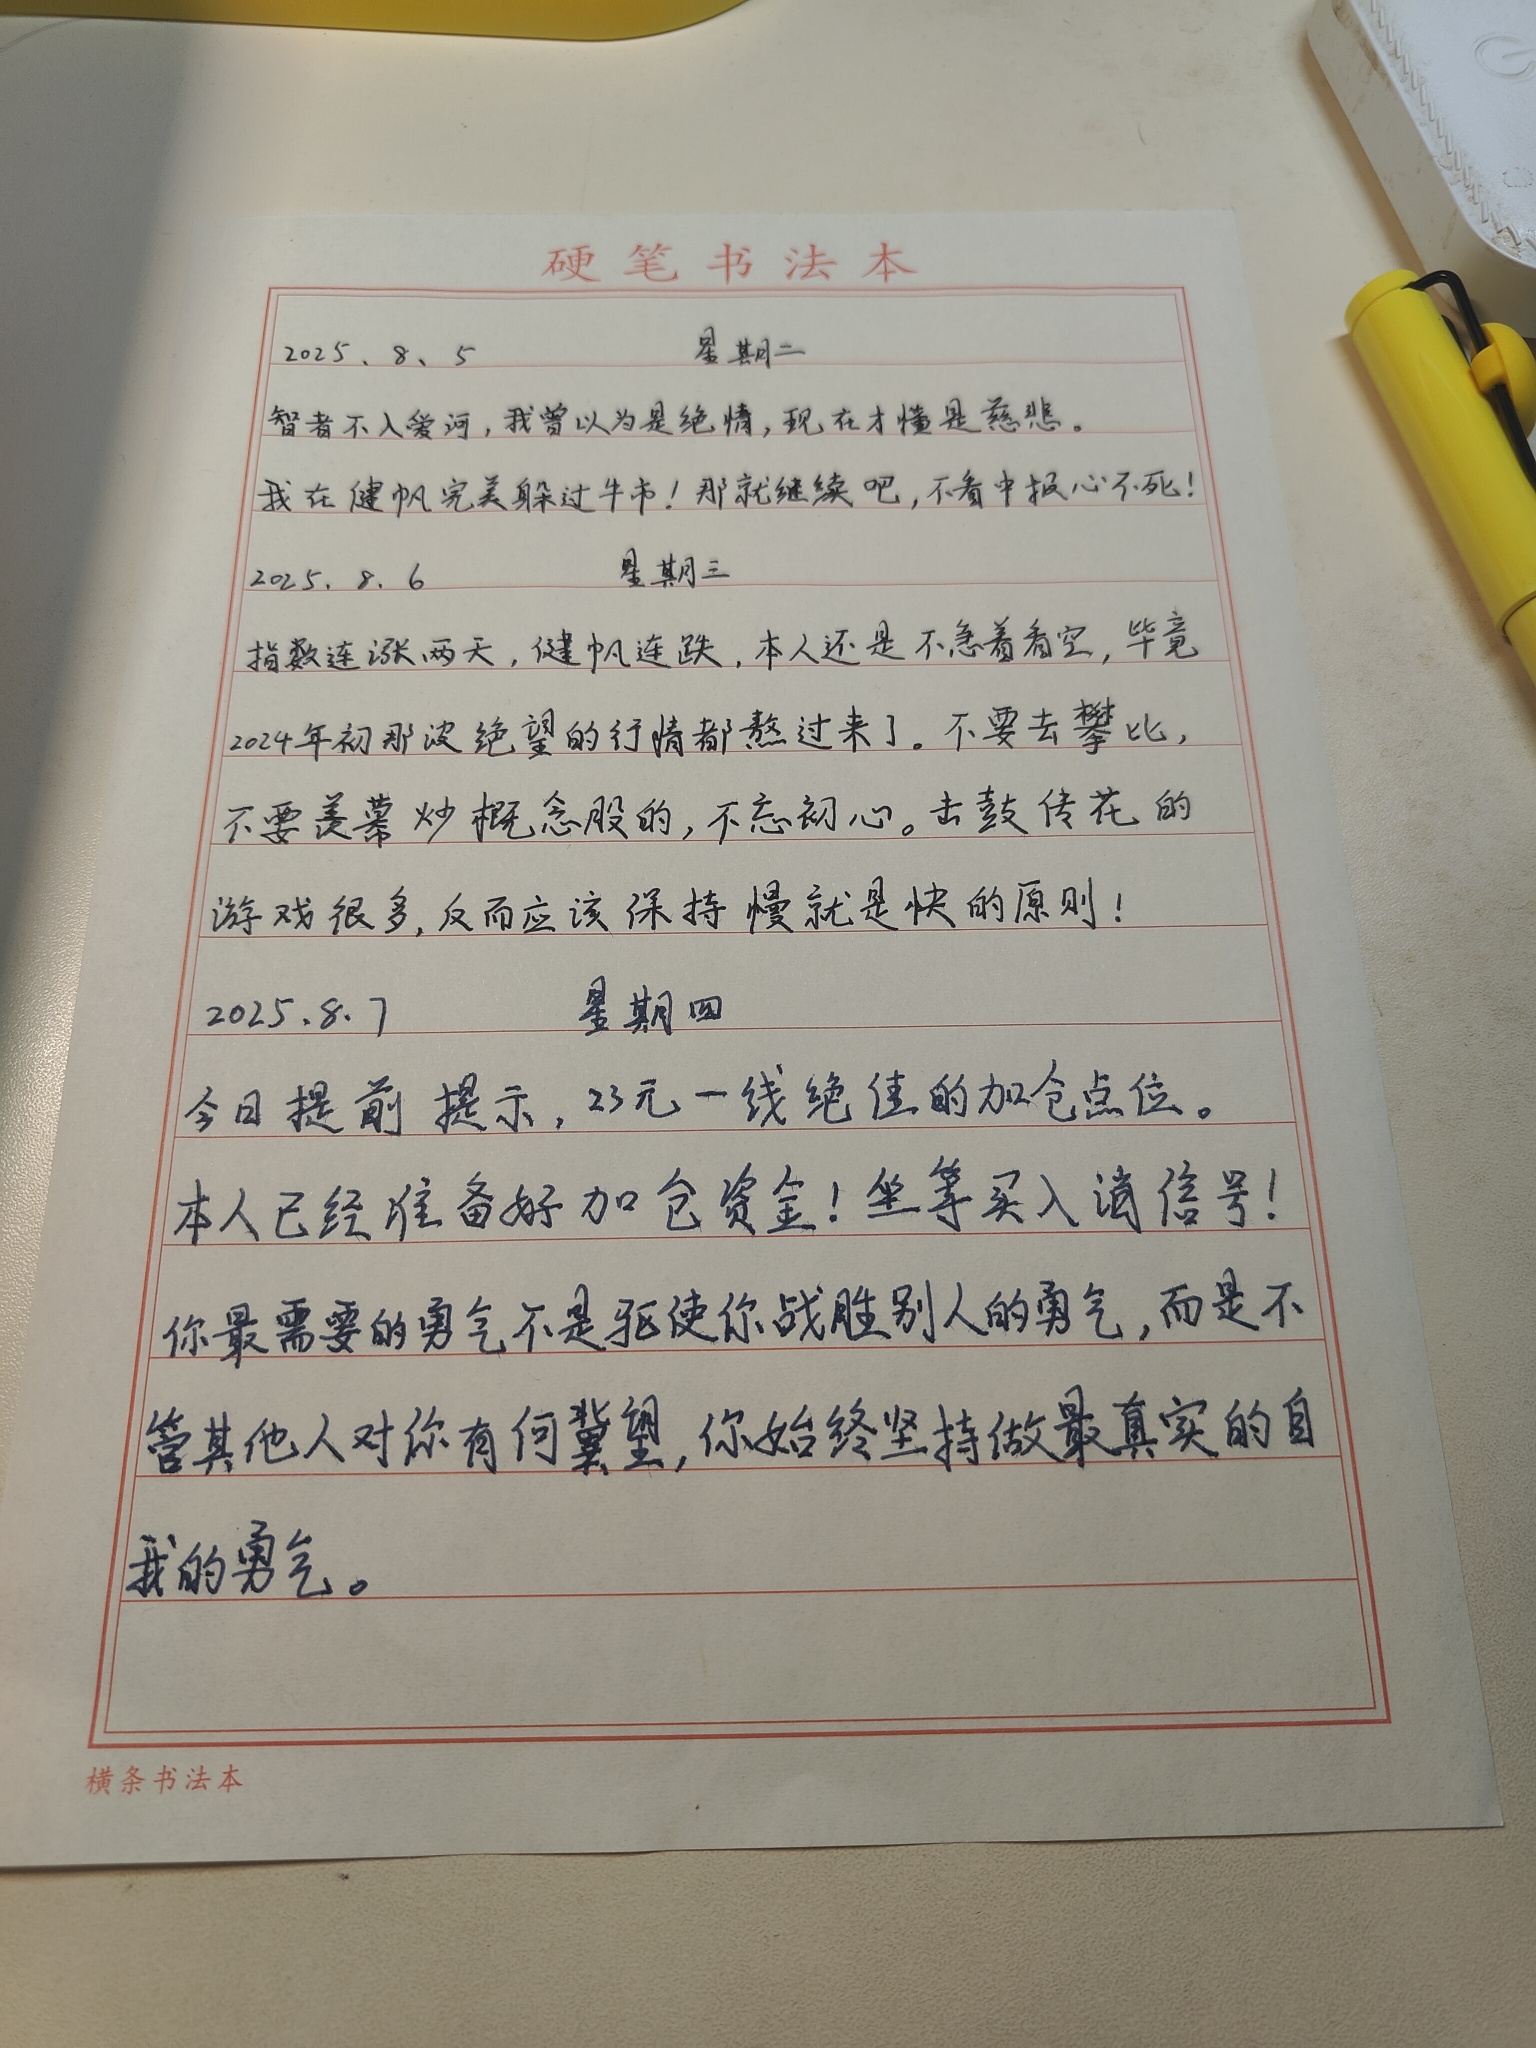 硬笔书法本
2025、8、5 星期二
智者不入爱河,我曾以为是绝情,现在才懂是慈悲。
我在健帆完美躲过牛市!那就继续吧,不看中报心不死!
2025.8.6 星期三
指数连涨两天,健帆连跌,本人还是不急着看空,毕竟
2024年初那波绝望的行情都熬过来了。不要去攀比,
不要羡慕炒概念股的,不忘初心。击鼓传花的
游戏很多,反而应该保持慢就是快的原则!
2025.8.7 星期四
今日提前提示,23元一线绝佳的加仓点位。
本人已经准备好加仓资金!坐等买入消信号!
你最需要的勇气不是驱使你战胜别人的勇气,而是不
管其他人对你有何冀望,你始终坚持做最真实的自
我的勇气。
横条书法本